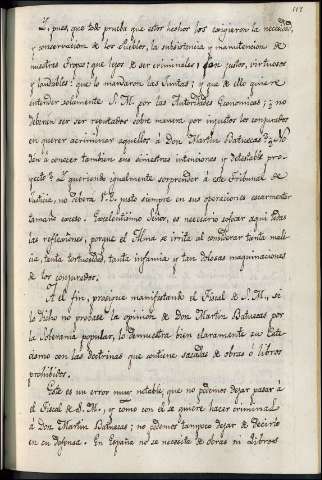 Y pues, que todo prueba que estos hechos los exigieron la necesidad,
y conservacion de los Pueblos, la subsistencia y manutencion de
nuestras Tropas; que lejos de ser criminales, son justos, virtuosos
y laudables; que lo mandaron las Juntas; y que de ello quiere
entender solamente S. M. por las Autoridades Economicas; ¿no
deberan ser reputados sobre manera por injustos los conjurados
en querer acriminar aquellos á Don Martin Batuecas? ¿No
dan á conocer tambien sus siniestras intenciones y detestable pro-
yecto? Y queriendo igualmente sorprender á este Tribunal de
Justicia, no debera S. E. justo siempre en sus operaciones escarmentar
tamaño exceso. Excelentisimo Señor, es necesario sofocar aqui todas
las reflexiones, porque el Alma se irrita al considerar tanta mali-
cia, tanta tortuosidad, tanta infamia y tan dolosas maquinaciones
de los conjurados.
A el fin, prosigue manifestando el Fiscal de S. M., si
lo dicho no probase la opinion de Don Martin Batuecas por
la Soberania popular, lo demuestra bien claramente su Cate-
cismo con las doctrinas que contiene sacadas de obras ó libros
prohibidos.
Este es un error muy notable, que no podemos dejar pasar á
el Fiscal de S. M., y como con él se quiere hacer criminal
á Don Martin Batuecas; no podemos tampoco dejar de decirlo
en su defensa. En España no se necesita de obras ni libros